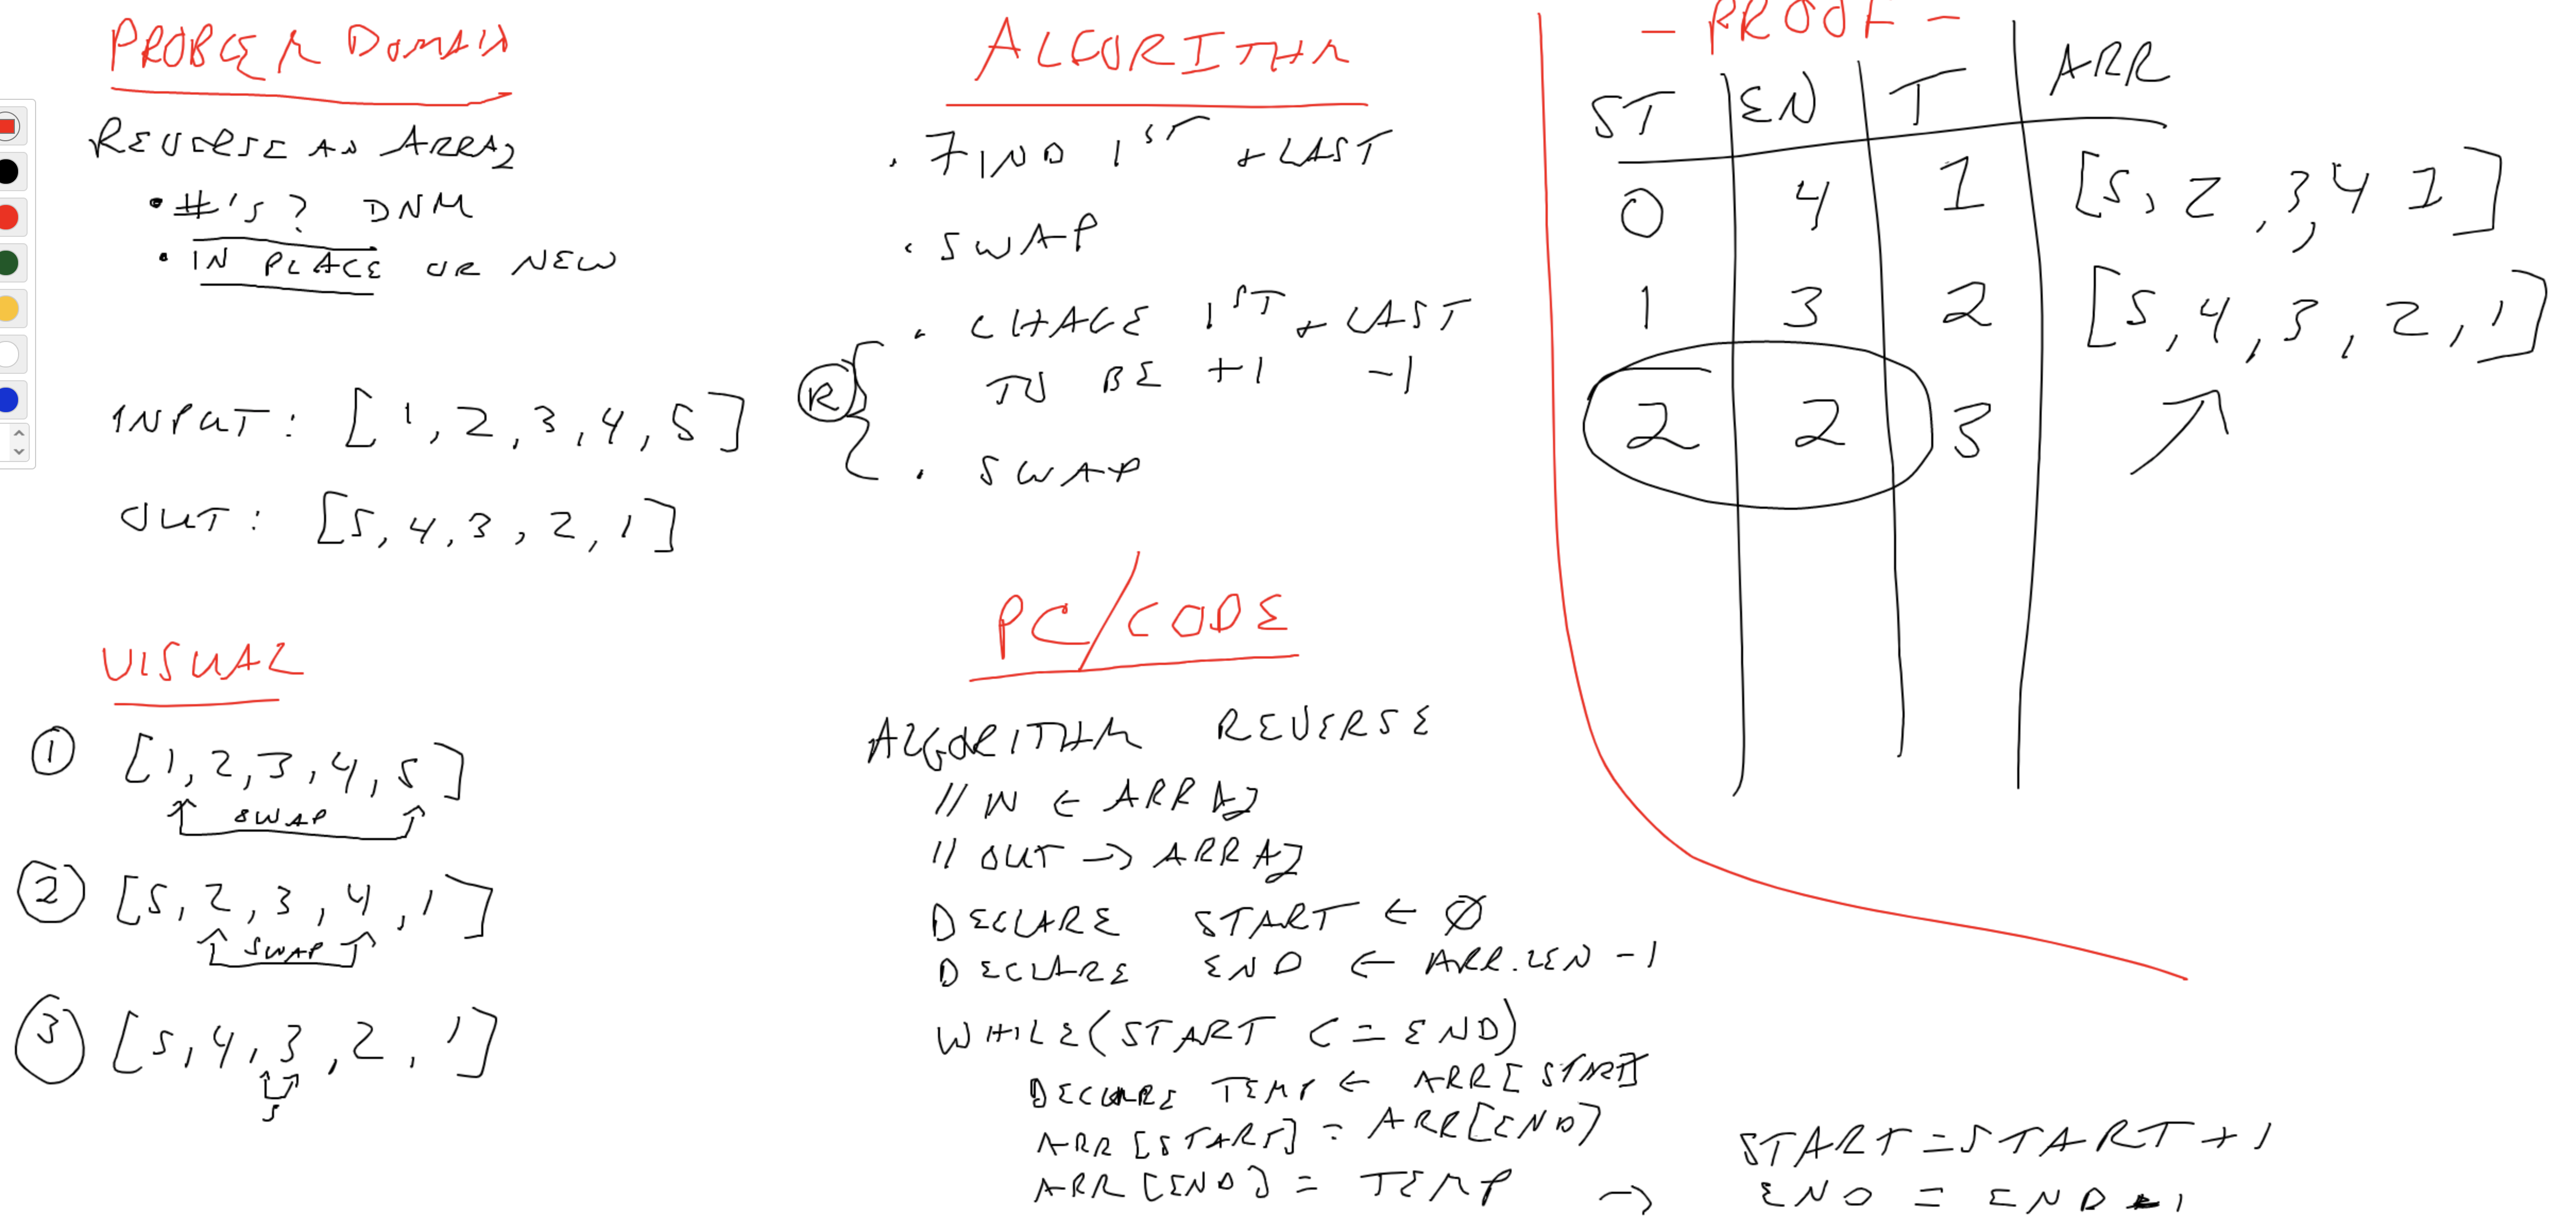 PROBLEM DOMAIN
REVERSE AN ARRAY
• #'S? DNM
• IN PLACE OR NEW
INPUT: [1, 2, 3, 4, 5]
OUT: [5, 4, 3, 2, 1]
VISUAL
① [1, 2, 3, 4, 5]
SWAP
② [5, 2, 3, 4, 1]
SWAP
③ [5, 4, 3, 2, 1]
S
ALGORITHM
• FIND 1ST + LAST
• SWAP
R
• CHAGE 1ST + LAST
TO BE +1 -1
• SWAP
PC/CODE
ALGORITHM REVERSE
// IN ← ARRAY
// OUT → ARRAY
DECLARE START ← Ø
DECLARE END ← ARR.LEN -1
WHILE(START <= END)
DECLARE TEMP ← ARR[START]
ARR[START] = ARR[END]
ARR[END] = TEMP →
START=START+1
END = END-1
- PROOF -
ST EN T ARR
0 4 1 [5, 2, 3, 4 1]
1 3 2 [5, 4, 3, 2, 1]
2 2 3